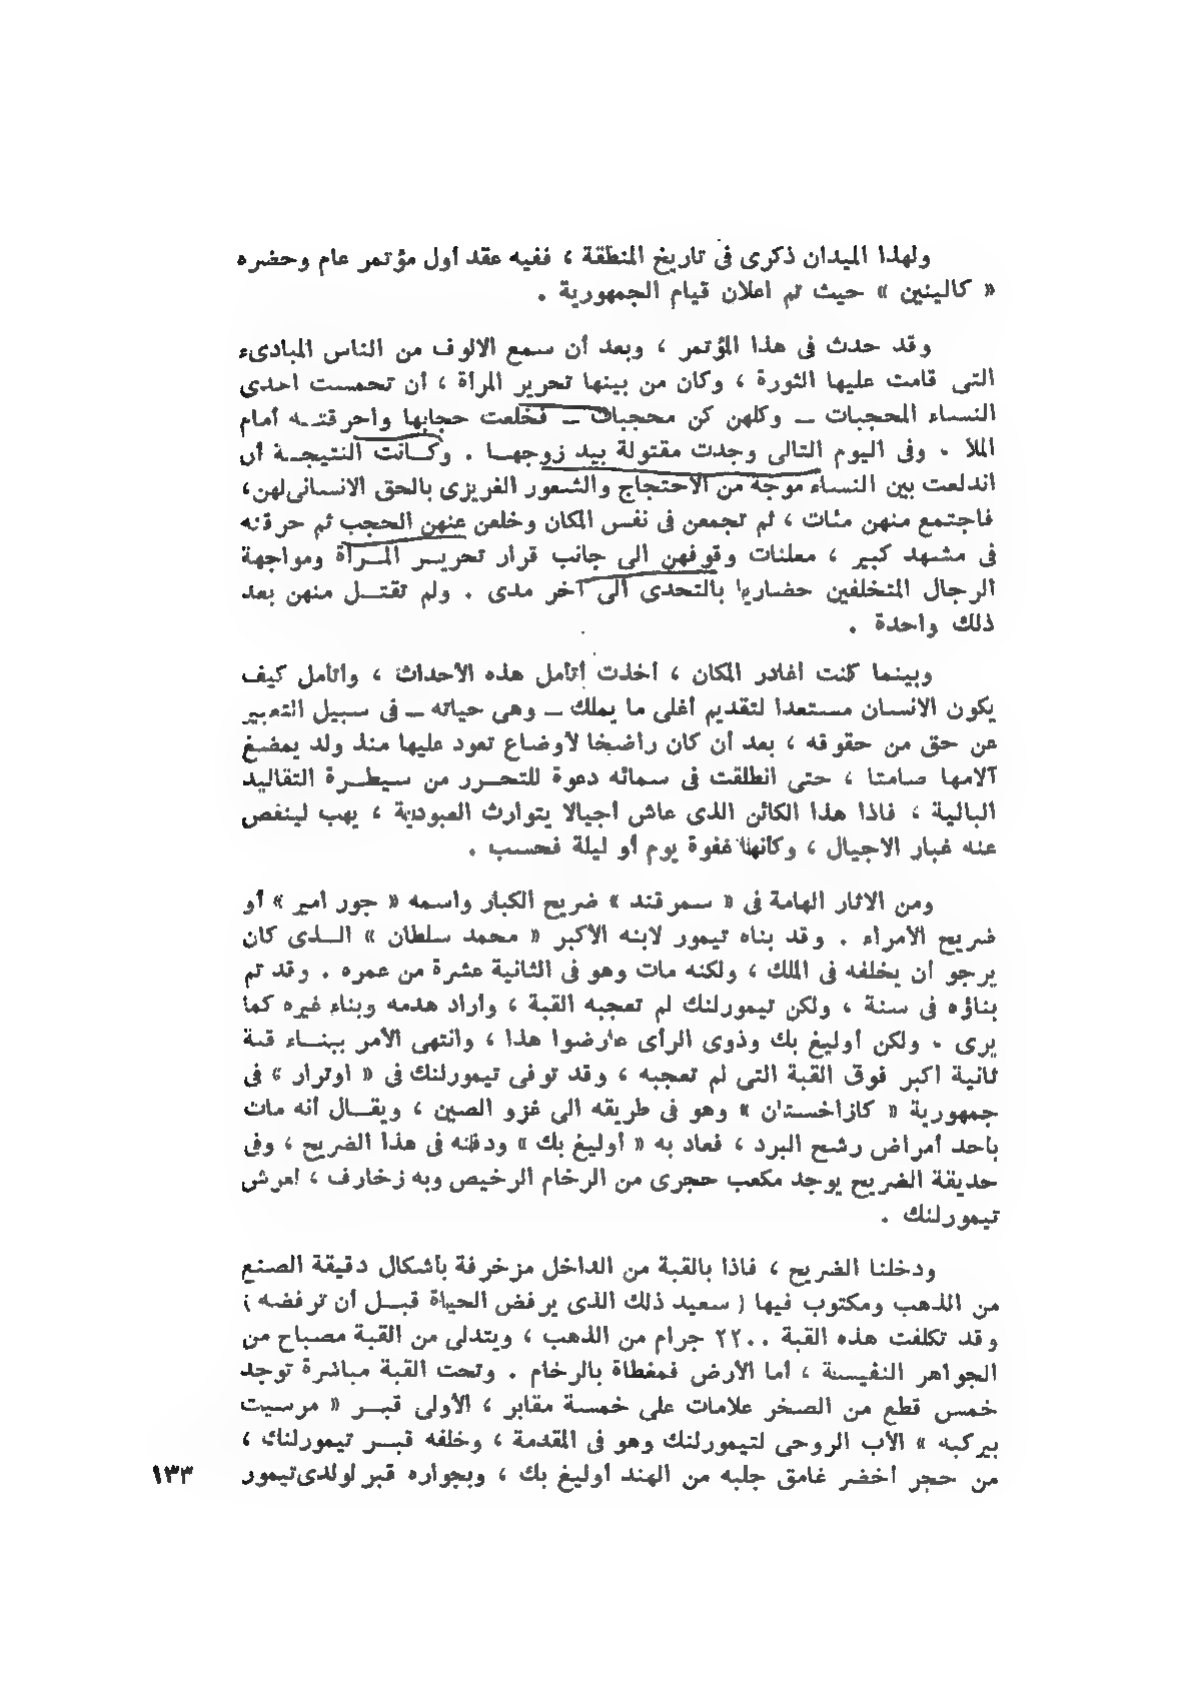 ولهذا الميدان ذكرى فى تاريخ المنطقة ، ففيه عقد أول مؤتمر عام وحضره
« كالينين » حيث تم اعلان قيام الجمهورية .
وقد حدث فى هذا المؤتمر ، وبعد أن سمع الالوف من الناس المبادىء
التى قامت عليها الثورة ، وكان من بينها تحرير المرأة ، أن تحمست احدى
النساء المحجبات ــ وكلهن كن محجبات ــ فخلعت حجابها وأحرقتـه أمام
الملأ . وفى اليوم التالى وجدت مقتولة بيد زوجهـا . وكـانت النتيجـة أن
اندلعت بين النساء موجة من الاحتجاج والشعور الغريزى بالحق الانسانى لهن،
فاجتمع منهن مئات ، ثم تجمعن فى نفس المكان وخلعن عنهن الحجب ثم حرقنه
فى مشهد كبير ، معلنات وقوفهن الى جانب قرار تحريـر المـرأة ومواجهة
الرجال المتخلفين حضاريا بالتحدى الى آخر مدى . ولم تقتـل منهن بعد
ذلك واحدة .
وبينما كنت أغادر المكان ، أخذت أتأمل هذه الأحداث ، وأتأمل كيف
يكون الانسـان مستعدا لتقديم أغلى ما يملك ــ وهى حياته ــ فى سبيل التعبير
عن حق من حقوقه ، بعد أن كان راضخا لأوضاع تعود عليها منذ ولد يمضغ
آلامها صامتا ، حتى انطلقت فى سمائه دعوة للتحـرر من سيطـرة التقاليد
البالية ، فاذا هذا الكائن الذى عاش أجيالا يتوارث العبودية ، يهب لينفض
عنه غبار الاجيال ، وكأنها غفوة يوم أو ليلة فحسب .
ومن الاثار الهامة فى « سمرقند » ضريح الكبار واسمه « جور أمير » أو
ضريح الأمراء . وقد بناه تيمور لابنه الأكبر « محمد سلطان » الـذى كان
يرجو أن يخلفه فى الملك ، ولكنه مات وهو فى الثانية عشرة من عمره . وقد تم
بناؤه فى سنة ، ولكن تيمورلنك لم تعجبه القبة ، وأراد هدمه وبناء غيره كما
يرى . ولكن أوليغ بك وذوى الرأى عارضوا هذا ، وانتهى الأمر ببنـاء قبة
ثانية أكبر فوق القبة التى لم تعجبه ، وقد توفى تيمورلنك فى « اوترار » فى
جمهورية « كازاخستان » وهو فى طريقه الى غزو الصين ، ويقـال أنه مات
بأحد أمراض رشح البرد ، فعاد به « أوليغ بك » ودفنه فى هذا الضريح ، وفى
حديقة الضريح يوجد مكعب حجرى من الرخام الرخيص وبه زخارف ، لعرش
تيمورلنك .
ودخلنا الضريح ، فاذا بالقبة من الداخل مزخرفة بأشكال دقيقة الصنع
من الذهب ومكتوب فيها ( سعيد ذلك الذى يرفض الحياة قبـل أن ترفضه )
وقد تكلفت هذه القبة ٢٢٠٠ جرام من الذهب ، ويتدلى من القبة مصباح من
الجواهر النفيسة ، أما الأرض فمغطاة بالرخام . وتحت القبة مباشرة توجد
خمس قطع من الصخر علامات على خمسة مقابر ، الأولى قبـر « مرسيت
بيركبه » الأب الروحى لتيمورلنك وهو فى المقدمة ، وخلفه قبـر تيمورلنك ،
من حجر أخضر غامق جلبه من الهند أوليغ بك ، وبجواره قبر لولدى تيمور
١٣٣